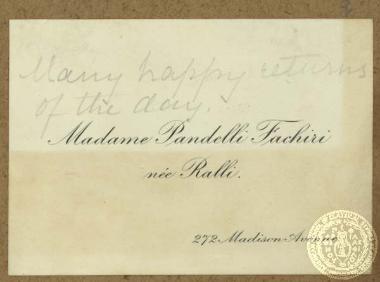 Many happy returns
of the day.
Madame Pandelli Fachiri
née Ralli.
272 Madison Avenue